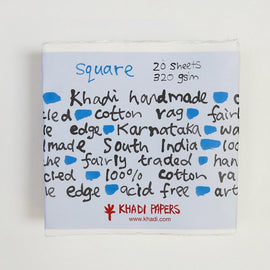 square 20 sheets
320 gsm
Khadi handmade
cled cotton rag fairl
le edge Karnataka wa
lmade South India 100
he fairly traded han
cled 100% cotton ra
le edge acid free art
KHADI PAPERS
www.khadi.com